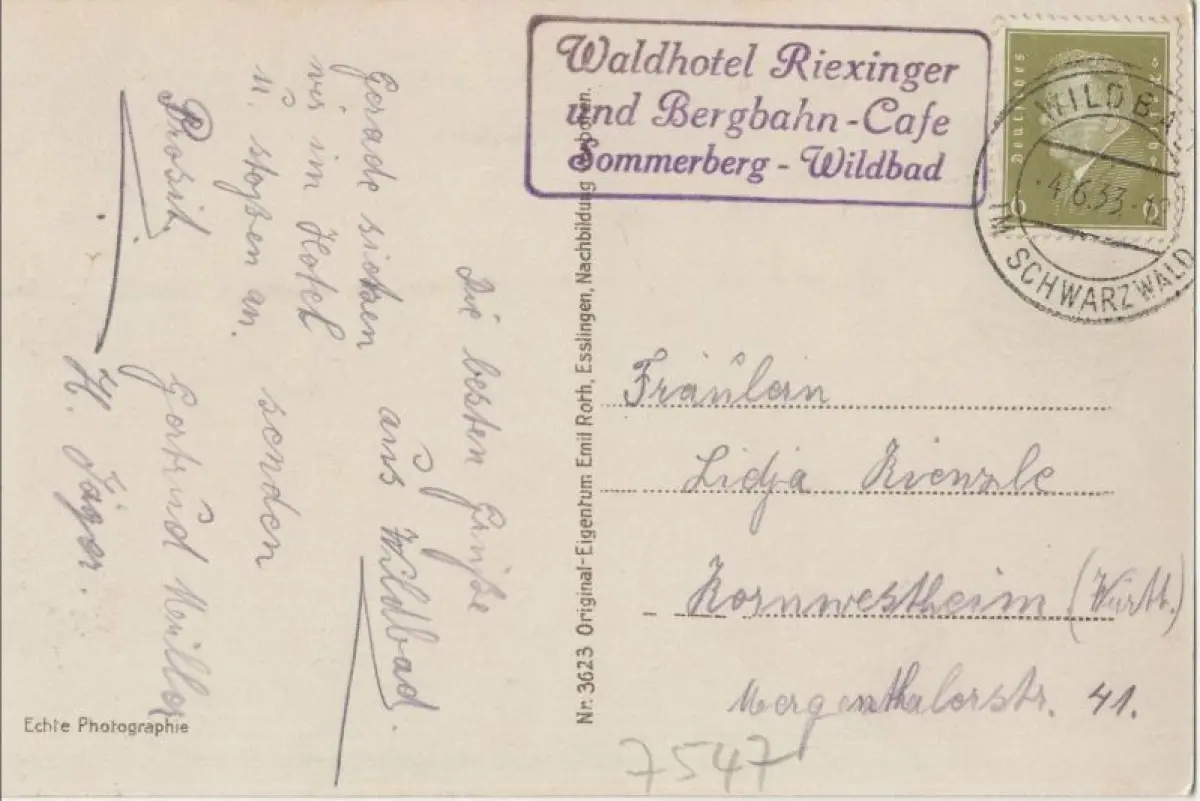 Waldhotel Riexinger
und Bergbahn-Cafe
Sommerberg - Wildbad
Deutsches Reich
6 6
WILDBAD
4.6.33.-12
IM SCHWARZWALD
Die besten Grüße
aus Wildbad.
Gerade sitzen
wir im Hotel
u. stoßen an.
Prosit,
senden
Gertrud Müller
H. Jäger.
Nr. 3623 Original-Eigentum Emil Roth, Esslingen, Nachbildung verboten.
Fräulein
Lidja Kienzle
Kornwestheim (Württ.)
Mergenthalerstr. 41.
7547
Echte Photographie